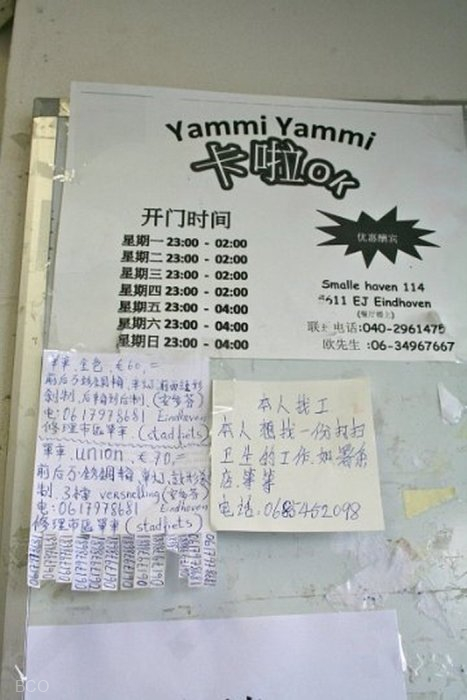 Yammi Yammi
卡啦OK
开门时间
星期一 23:00 - 02:00
星期二 23:00 - 02:00
星期三 23:00 - 02:00
星期四 23:00 - 02:00
星期五 23:00 - 04:00
星期六 23:00 - 04:00
星期日 23:00 - 04:00
优惠酬宾
Smalle haven 114
5611 EJ Eindhoven
(餐厅楼上)
联系电话:040-2961475
欧先生 :06-34967667
單車,全色,€60,=
前后不銹鋼輪,
電:0617978681 Eindhoven
修理市區單車 (stadfiets)
單車,union, €70,=
前后不銹鋼輪,
制, 3檔 versnelling
電:0617978681 Eindhoven
修理市區單車 (stadfiets)
0617978681
本人找工
本人想找一份打扫
卫生的工作.如
店等等
电话:0685452098
BCO